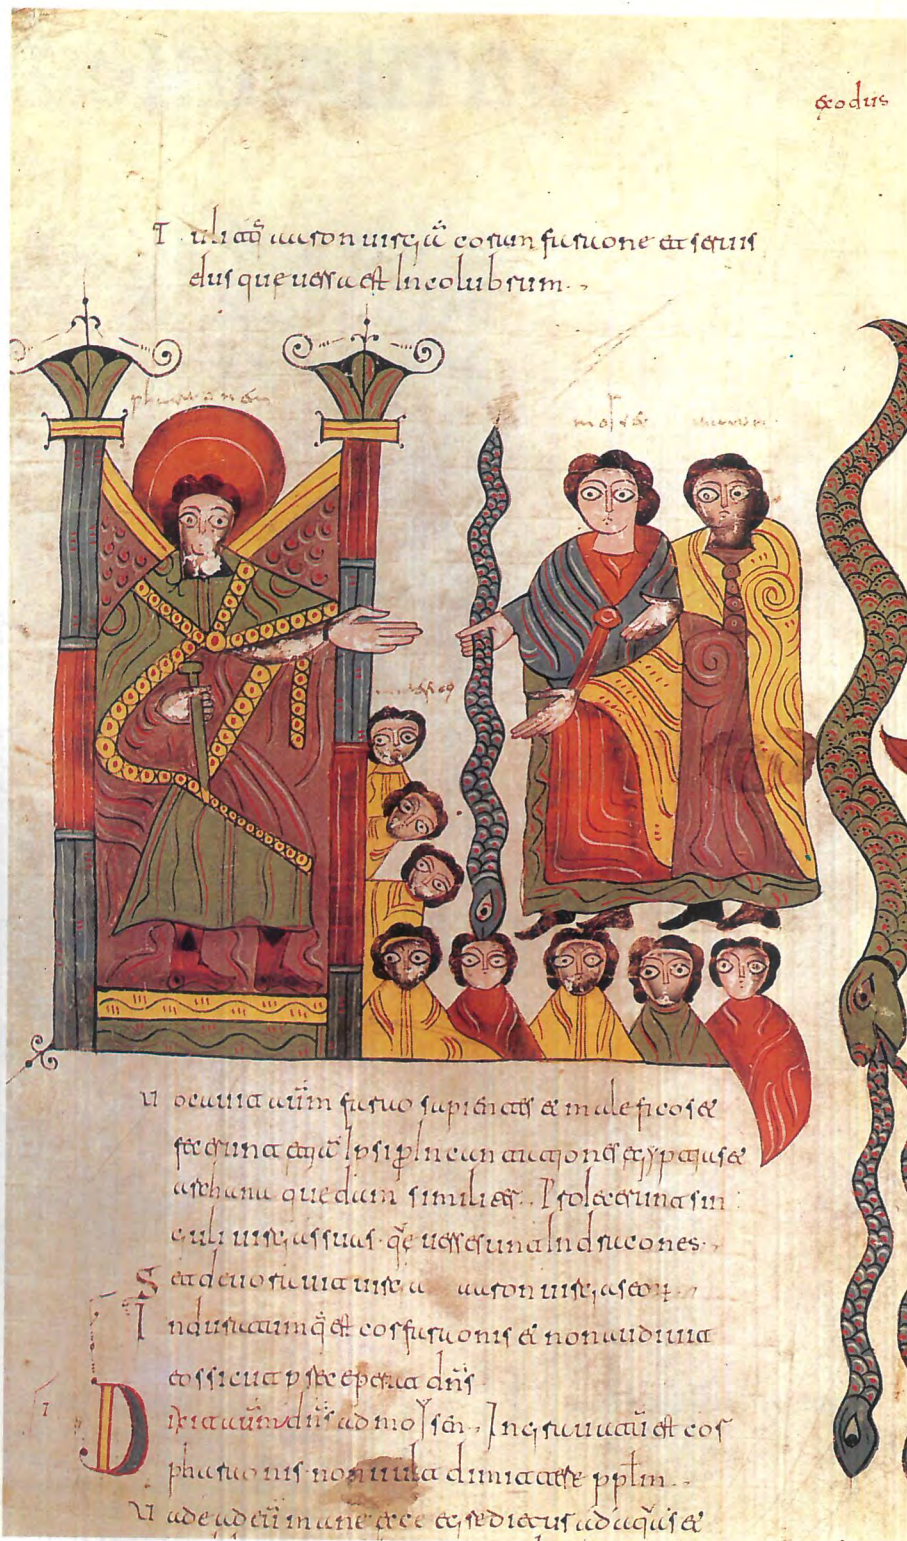 exodus
Tulitq̄ aaron uirgā coram faraone et seruis
eius que uersa est In colubrum.
pharaon
moises aaron
Uocauit aūm farao sapientes et maleficos et
fecerunt etiā Ipsi p̱ Incantationes egyptias et
archana quedam similiter. Proiecerunt sin
guli uirgas suas. q̄e uerse sunt In dracones.
Set deuorauit uirga aaron uirgas eorꝝ.
Induratumq̄ est cor faraonis et non audiuit
eos sicut preceperat dn̄s
Dixit aūm dn̄s ad moysen. Ingrauatū est cor
pharaonis non uult dimittere pplm.
Uade ad eū mane ecce egredietur ad aquas et